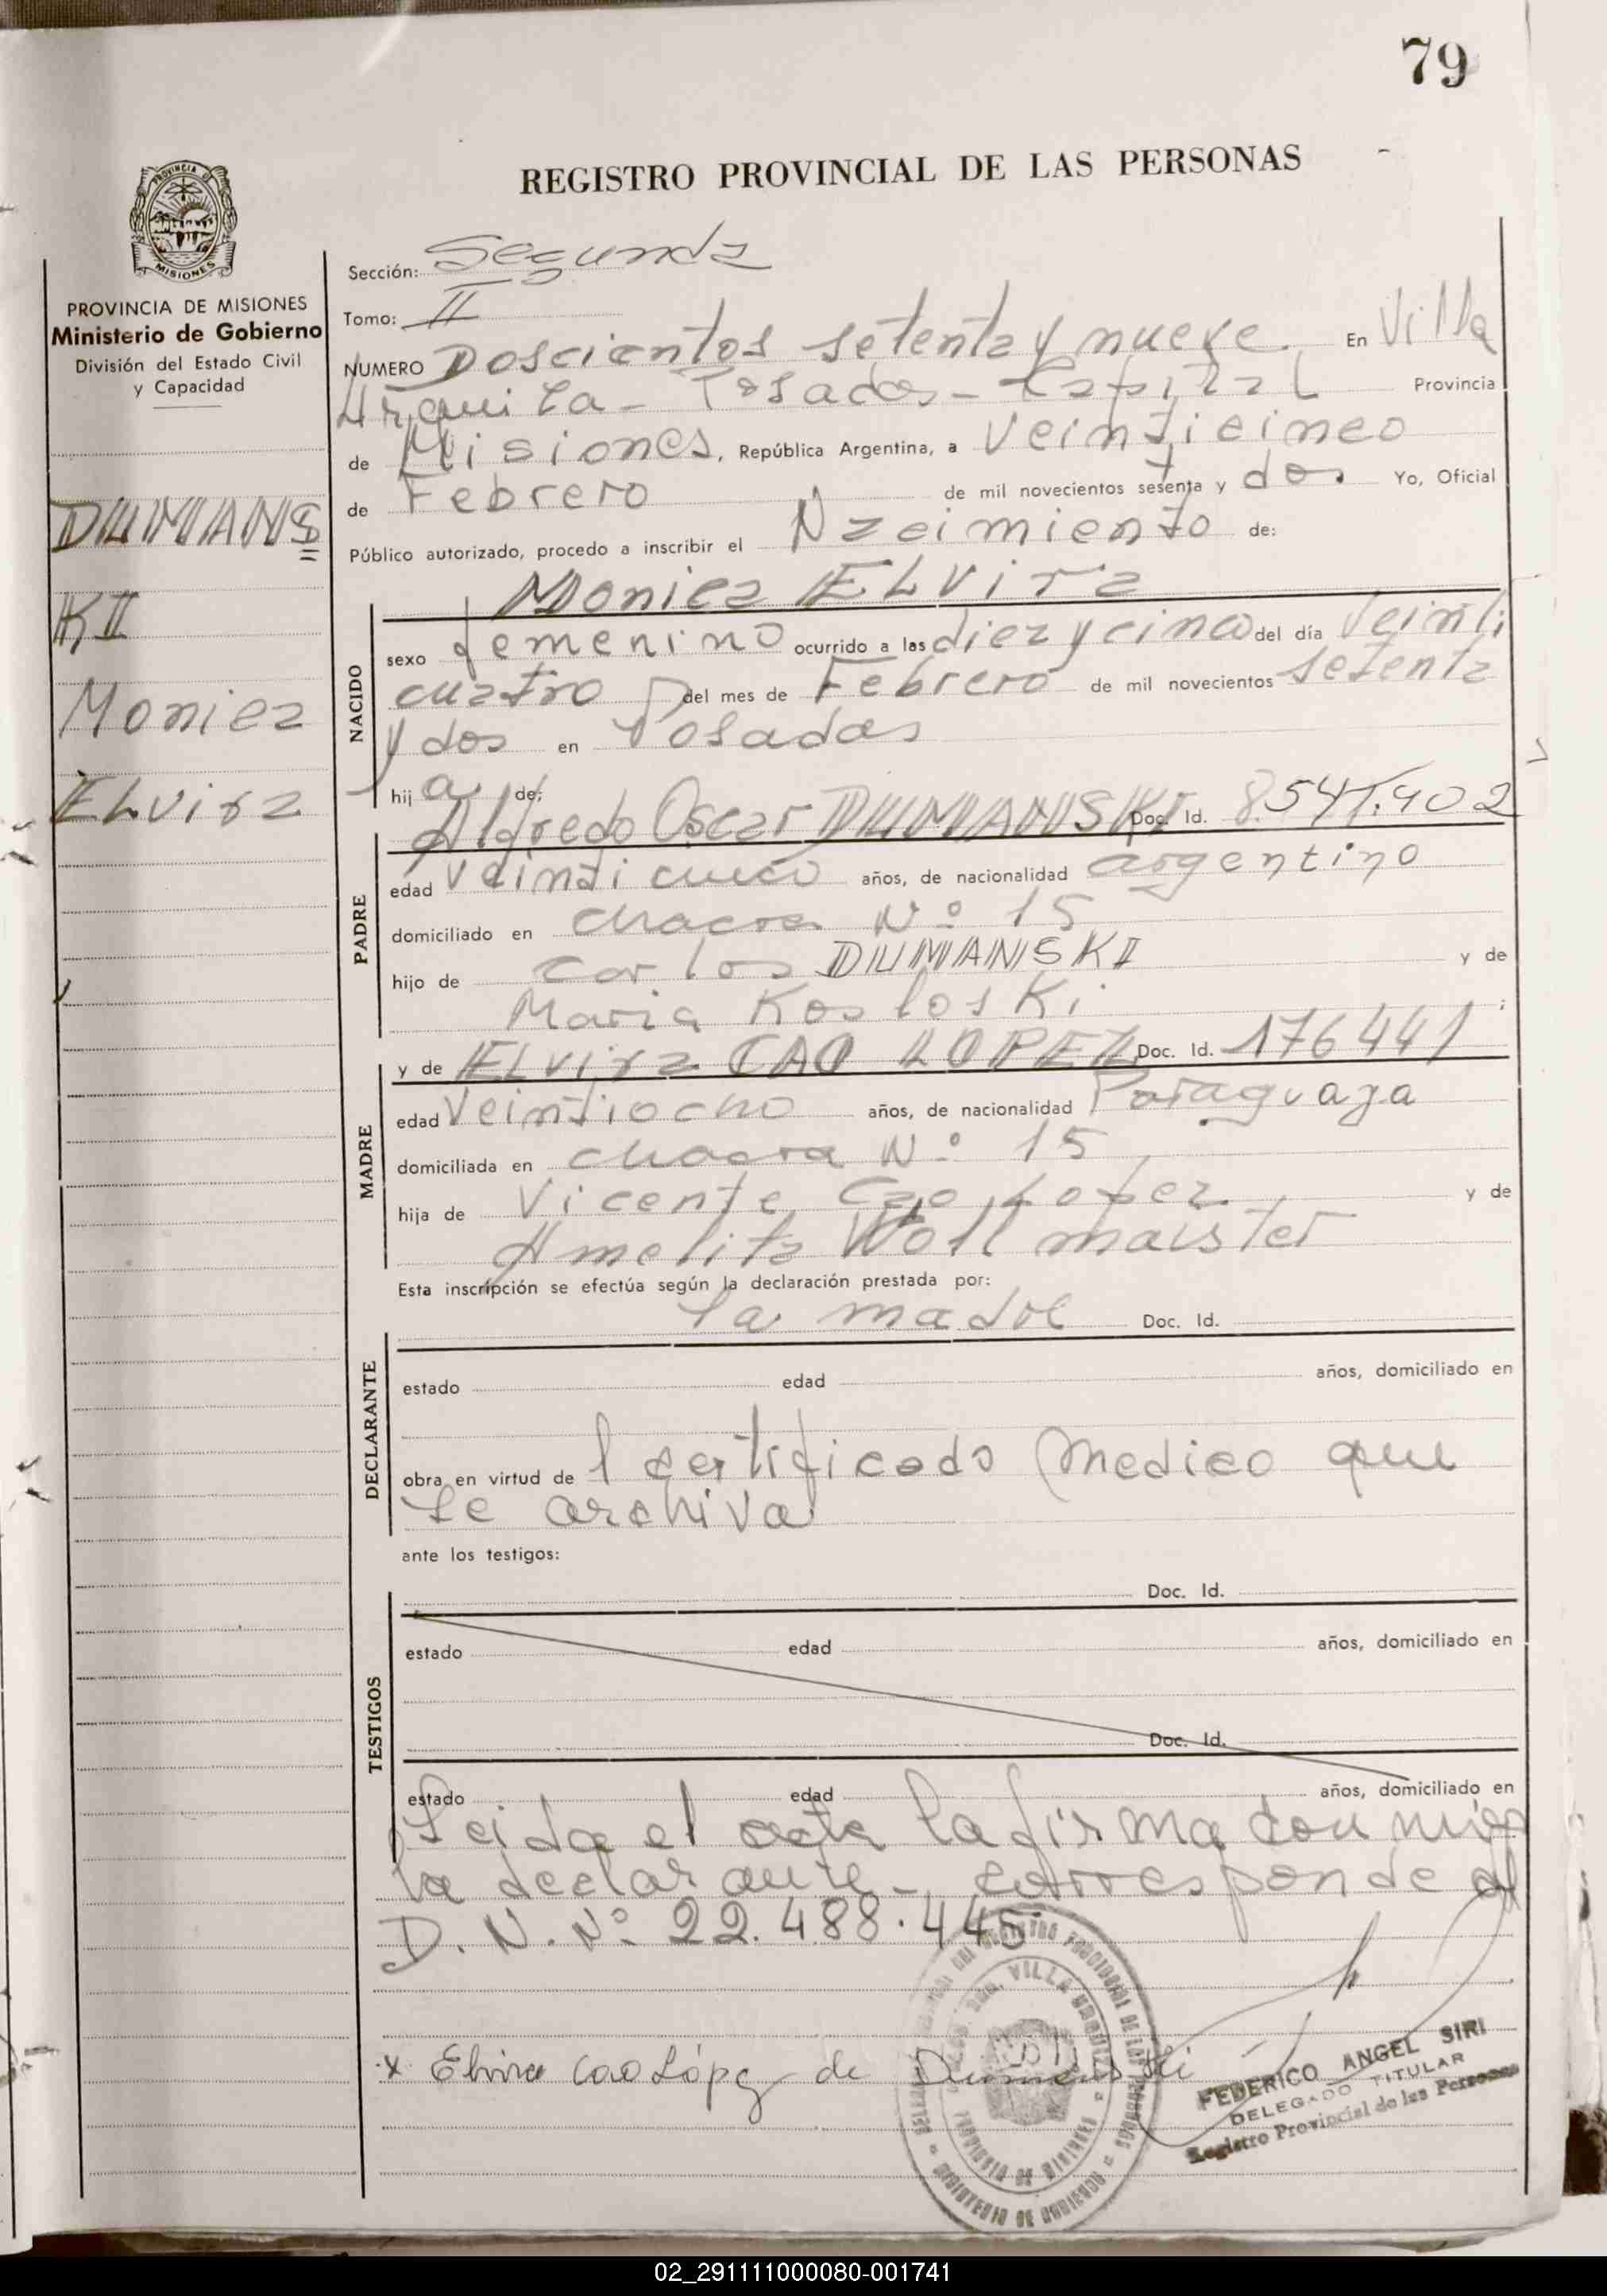 79
REGISTRO PROVINCIAL DE LAS PERSONAS
PROVINCIA DE MISIONES
Ministerio de Gobierno
División del Estado Civil
y Capacidad
DUMANS
KI
Monica
Elvira
Sección: Segunda
Tomo: II
NUMERO Doscientos setenta y nueve. En Villa
Urquiza - Posadas - Capital Provincia
de Misiones, República Argentina, a Veinticinco
de Febrero de mil novecientos sesenta y dos Yo, Oficial
Público autorizado, procedo a inscribir el Nacimiento de:
Monica ELVira
NACIDO
sexo femenino ocurrido a las diez y cinco del día Veinti
cuatro del mes de Febrero de mil novecientos setenta
y dos en Posadas
hij a de:
Alfredo Oscar DUMANSKI Doc. Id. 8.541.402
PADRE
edad Veinticinco años, de nacionalidad argentino
domiciliado en chacra Nº 15
hijo de Carlos DUMANSKI y de
Maria Kosloski
y de ELvira CAO LOPEZ Doc. Id. 176441
MADRE
edad Veintiocho años, de nacionalidad Paraguaya
domiciliada en chacra Nº 15
hija de Vicente Cao Lopez y de
Amelita Wollmaister
Esta inscripción se efectúa según la declaración prestada por:
la madre Doc. Id.
DECLARANTE
estado edad años, domiciliado en
obra en virtud de l certificado medico que
se archiva
ante los testigos:
Doc. Id.
TESTIGOS
estado edad años, domiciliado en
Doc. Id.
estado edad años, domiciliado en
Leida el acta la firma con migo
la declarante - corresponde al
D.N. Nº 22.488.445
x Elvira Cao López de Dumanski
FEDERICO ANGEL SIRI
DELEGADO TITULAR
Registro Provincial de las Personas
02_291111000080-001741